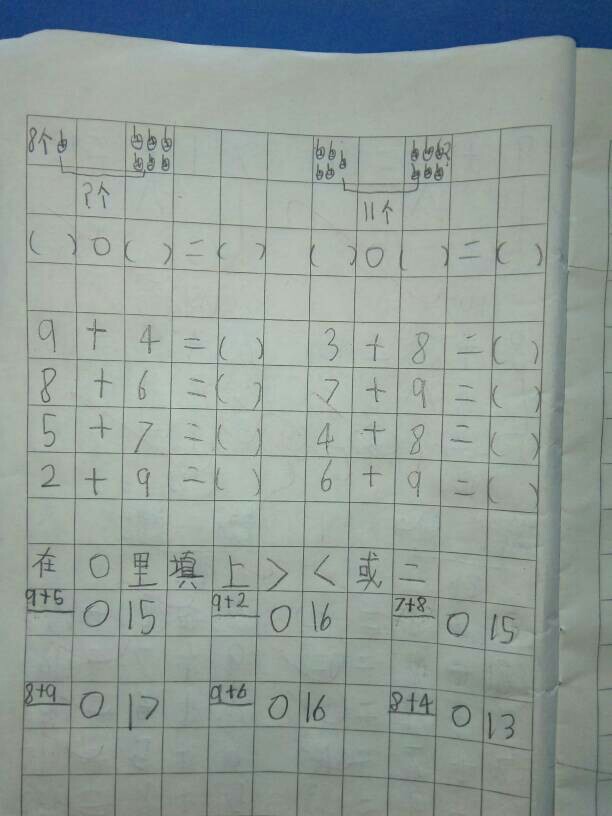 8个
?个 11个
( )○( )=( ) ( )○( )=( )
9+4=( ) 3+8=( )
8+6=( ) 7+9=( )
5+7=( ) 4+8=( )
2+9=( ) 6+9=( )
在○里填上><或=
9+5○15 9+2○16 7+8○15
8+9○17 9+6○16 8+4○13